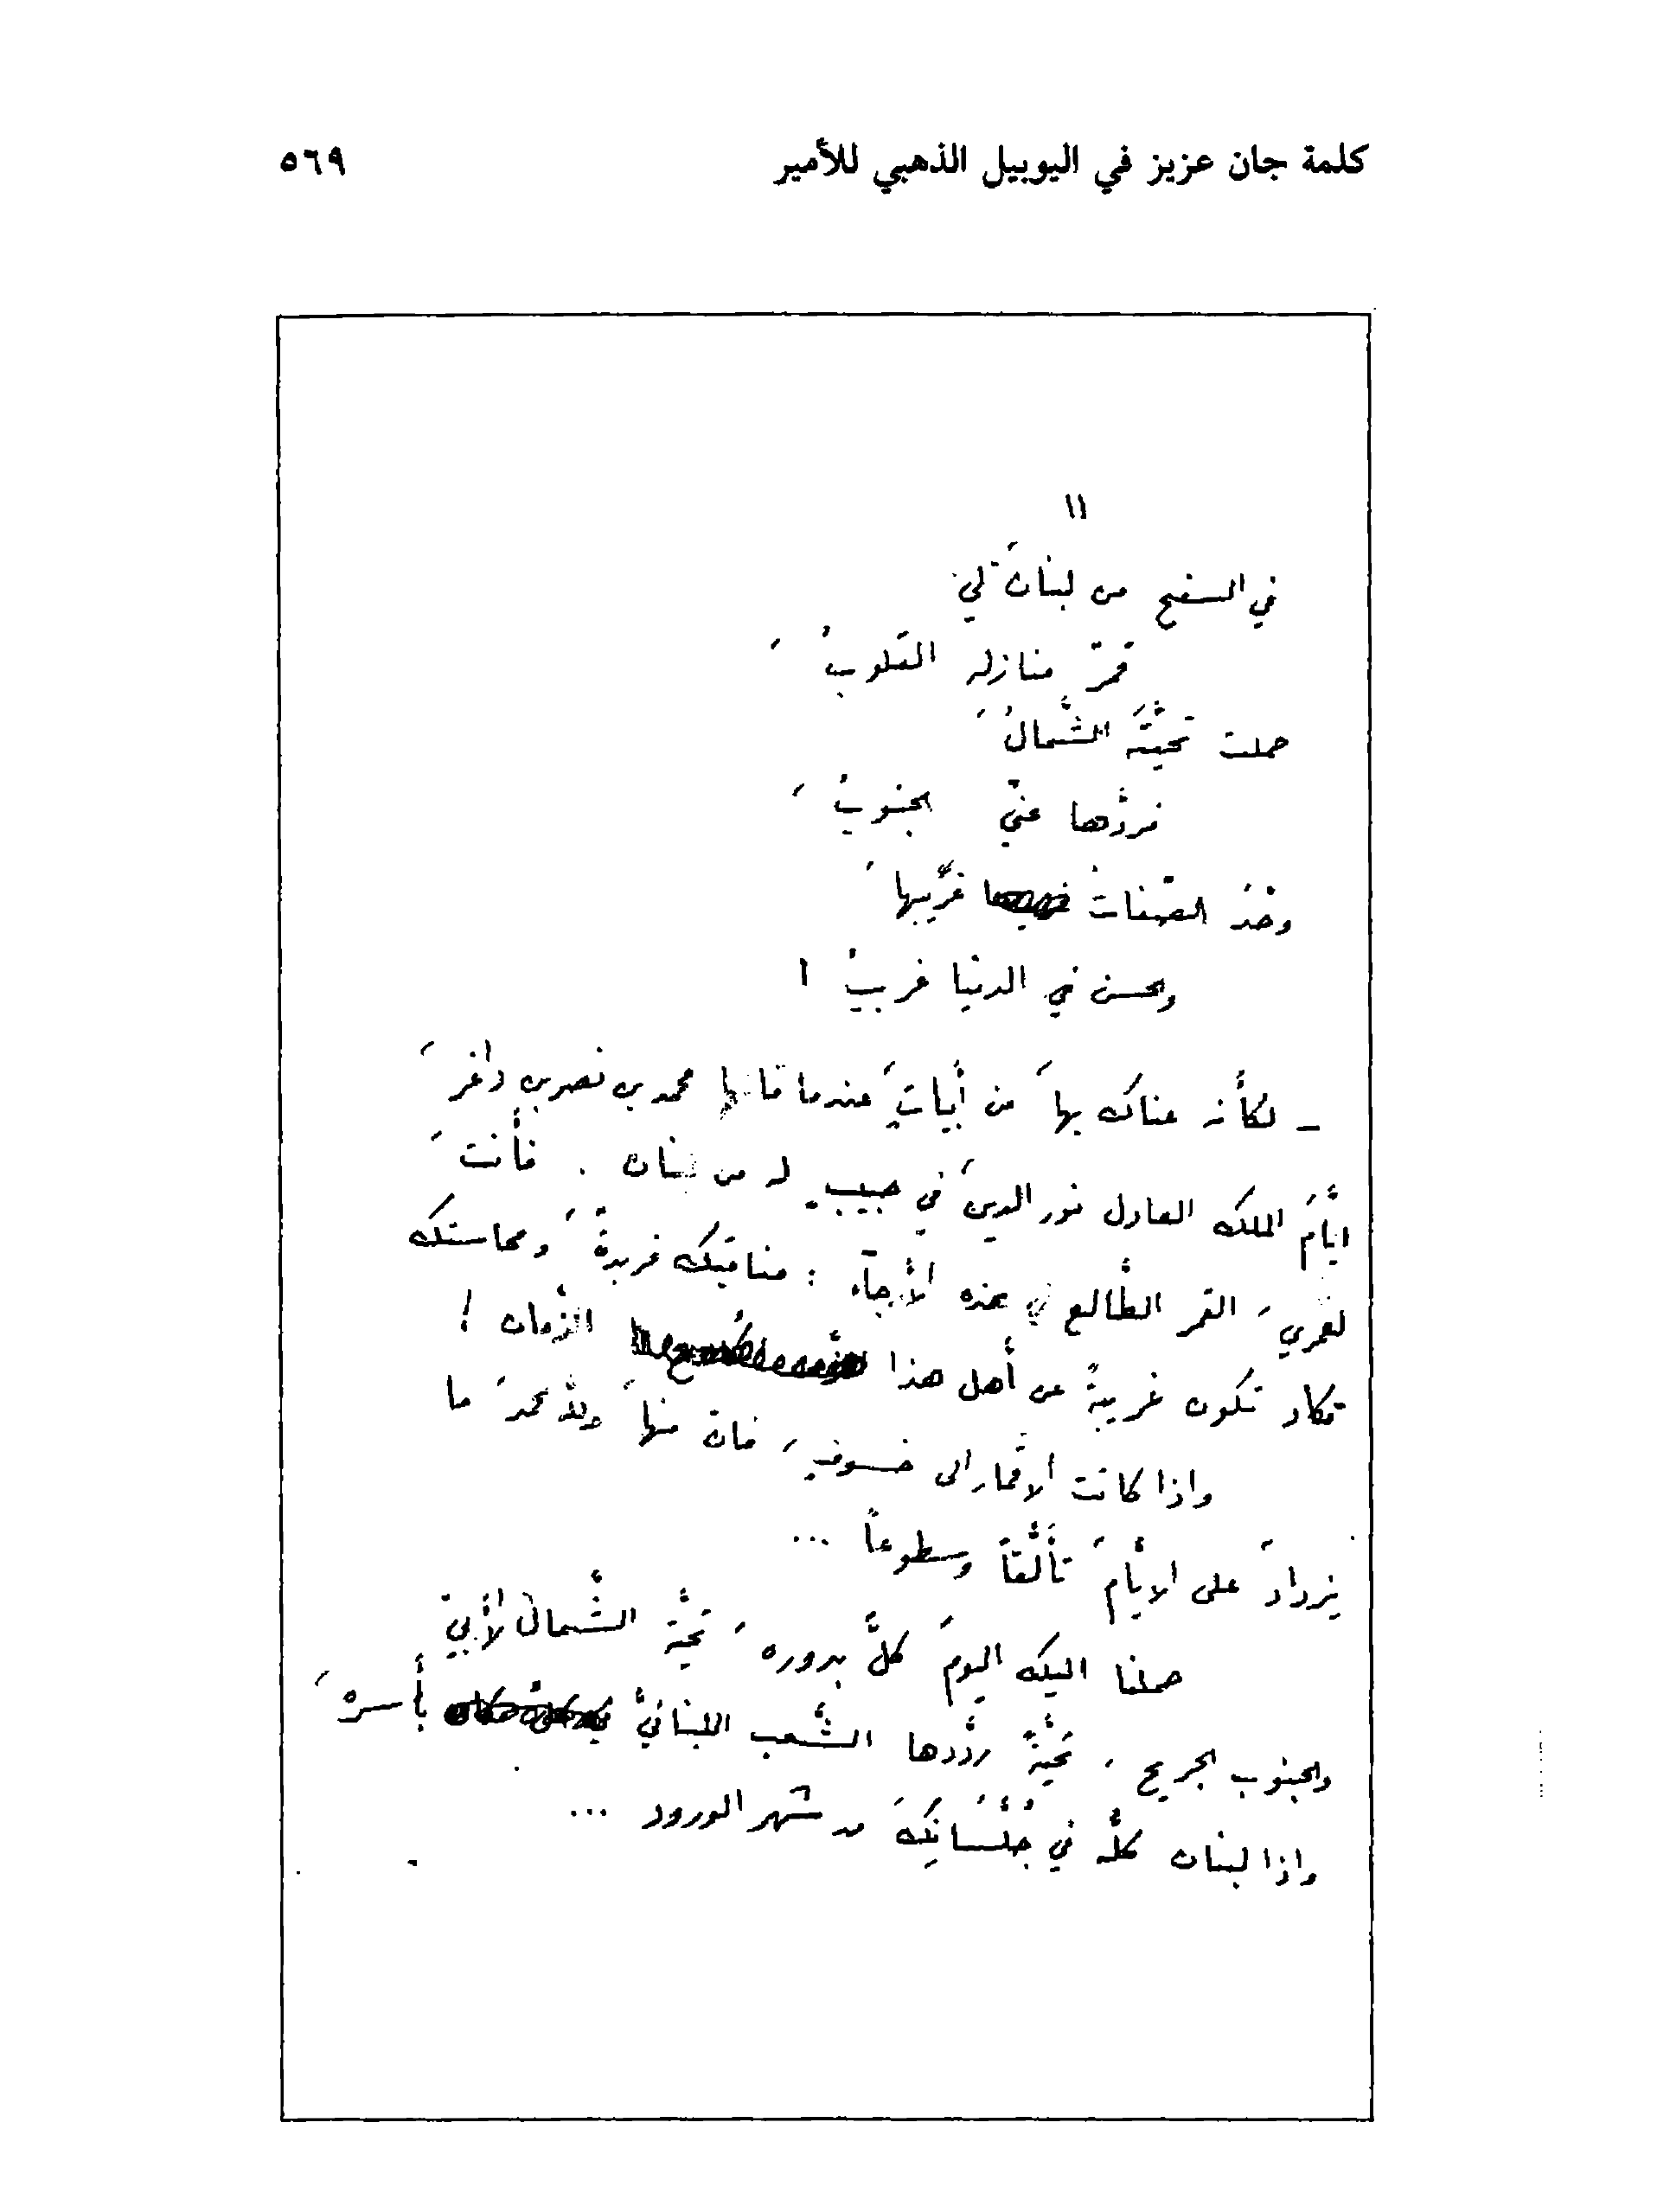 كلمة جان عزيز في اليوبيل الذهبي للأمير ٥٦٩
١١
في السفح من لبنانَ لي
قمرٌ منازله القلوبُ ،
حملت تحيَّتَه الشَّمالُ ،
فردَّها عنّي الجنوبُ ،
الصّفات غريبها ،
والحسن في الدنيا غريبُ !
ـ لكأنه عناك بها ، من أبياتٍ ، عندما قالها محمد بن نصر بن داغر ،
ايَّامَ الملك العادل نور الدين ، في حبيبٍ له من لبنان . فأنت ،
لعمري ، القمر الطَّالع في هذه الأرجآء : مناقبك فريدةٌ ، ومحاسنك
تكاد تكون غريبةً عن أهل هذا الزَّمان !
واذا كانت الاقمار الى خسوفٍ ، فان منها ، ولله حمد ، ما
يزداد ، على الايَّام ، تألُّقاً وسطوعاً ...
حملنا اليك اليوم ، كلَّ بدوره ، تحيَّة الشَّمال الأبيّ
والجنوب الجريح ، تحيَّةً ردَّدها الشَّعب اللبنانيُّ بأسره ،
واذا لبنان كلُّه في جُلَّسَانِكَ من شهر الورود ...